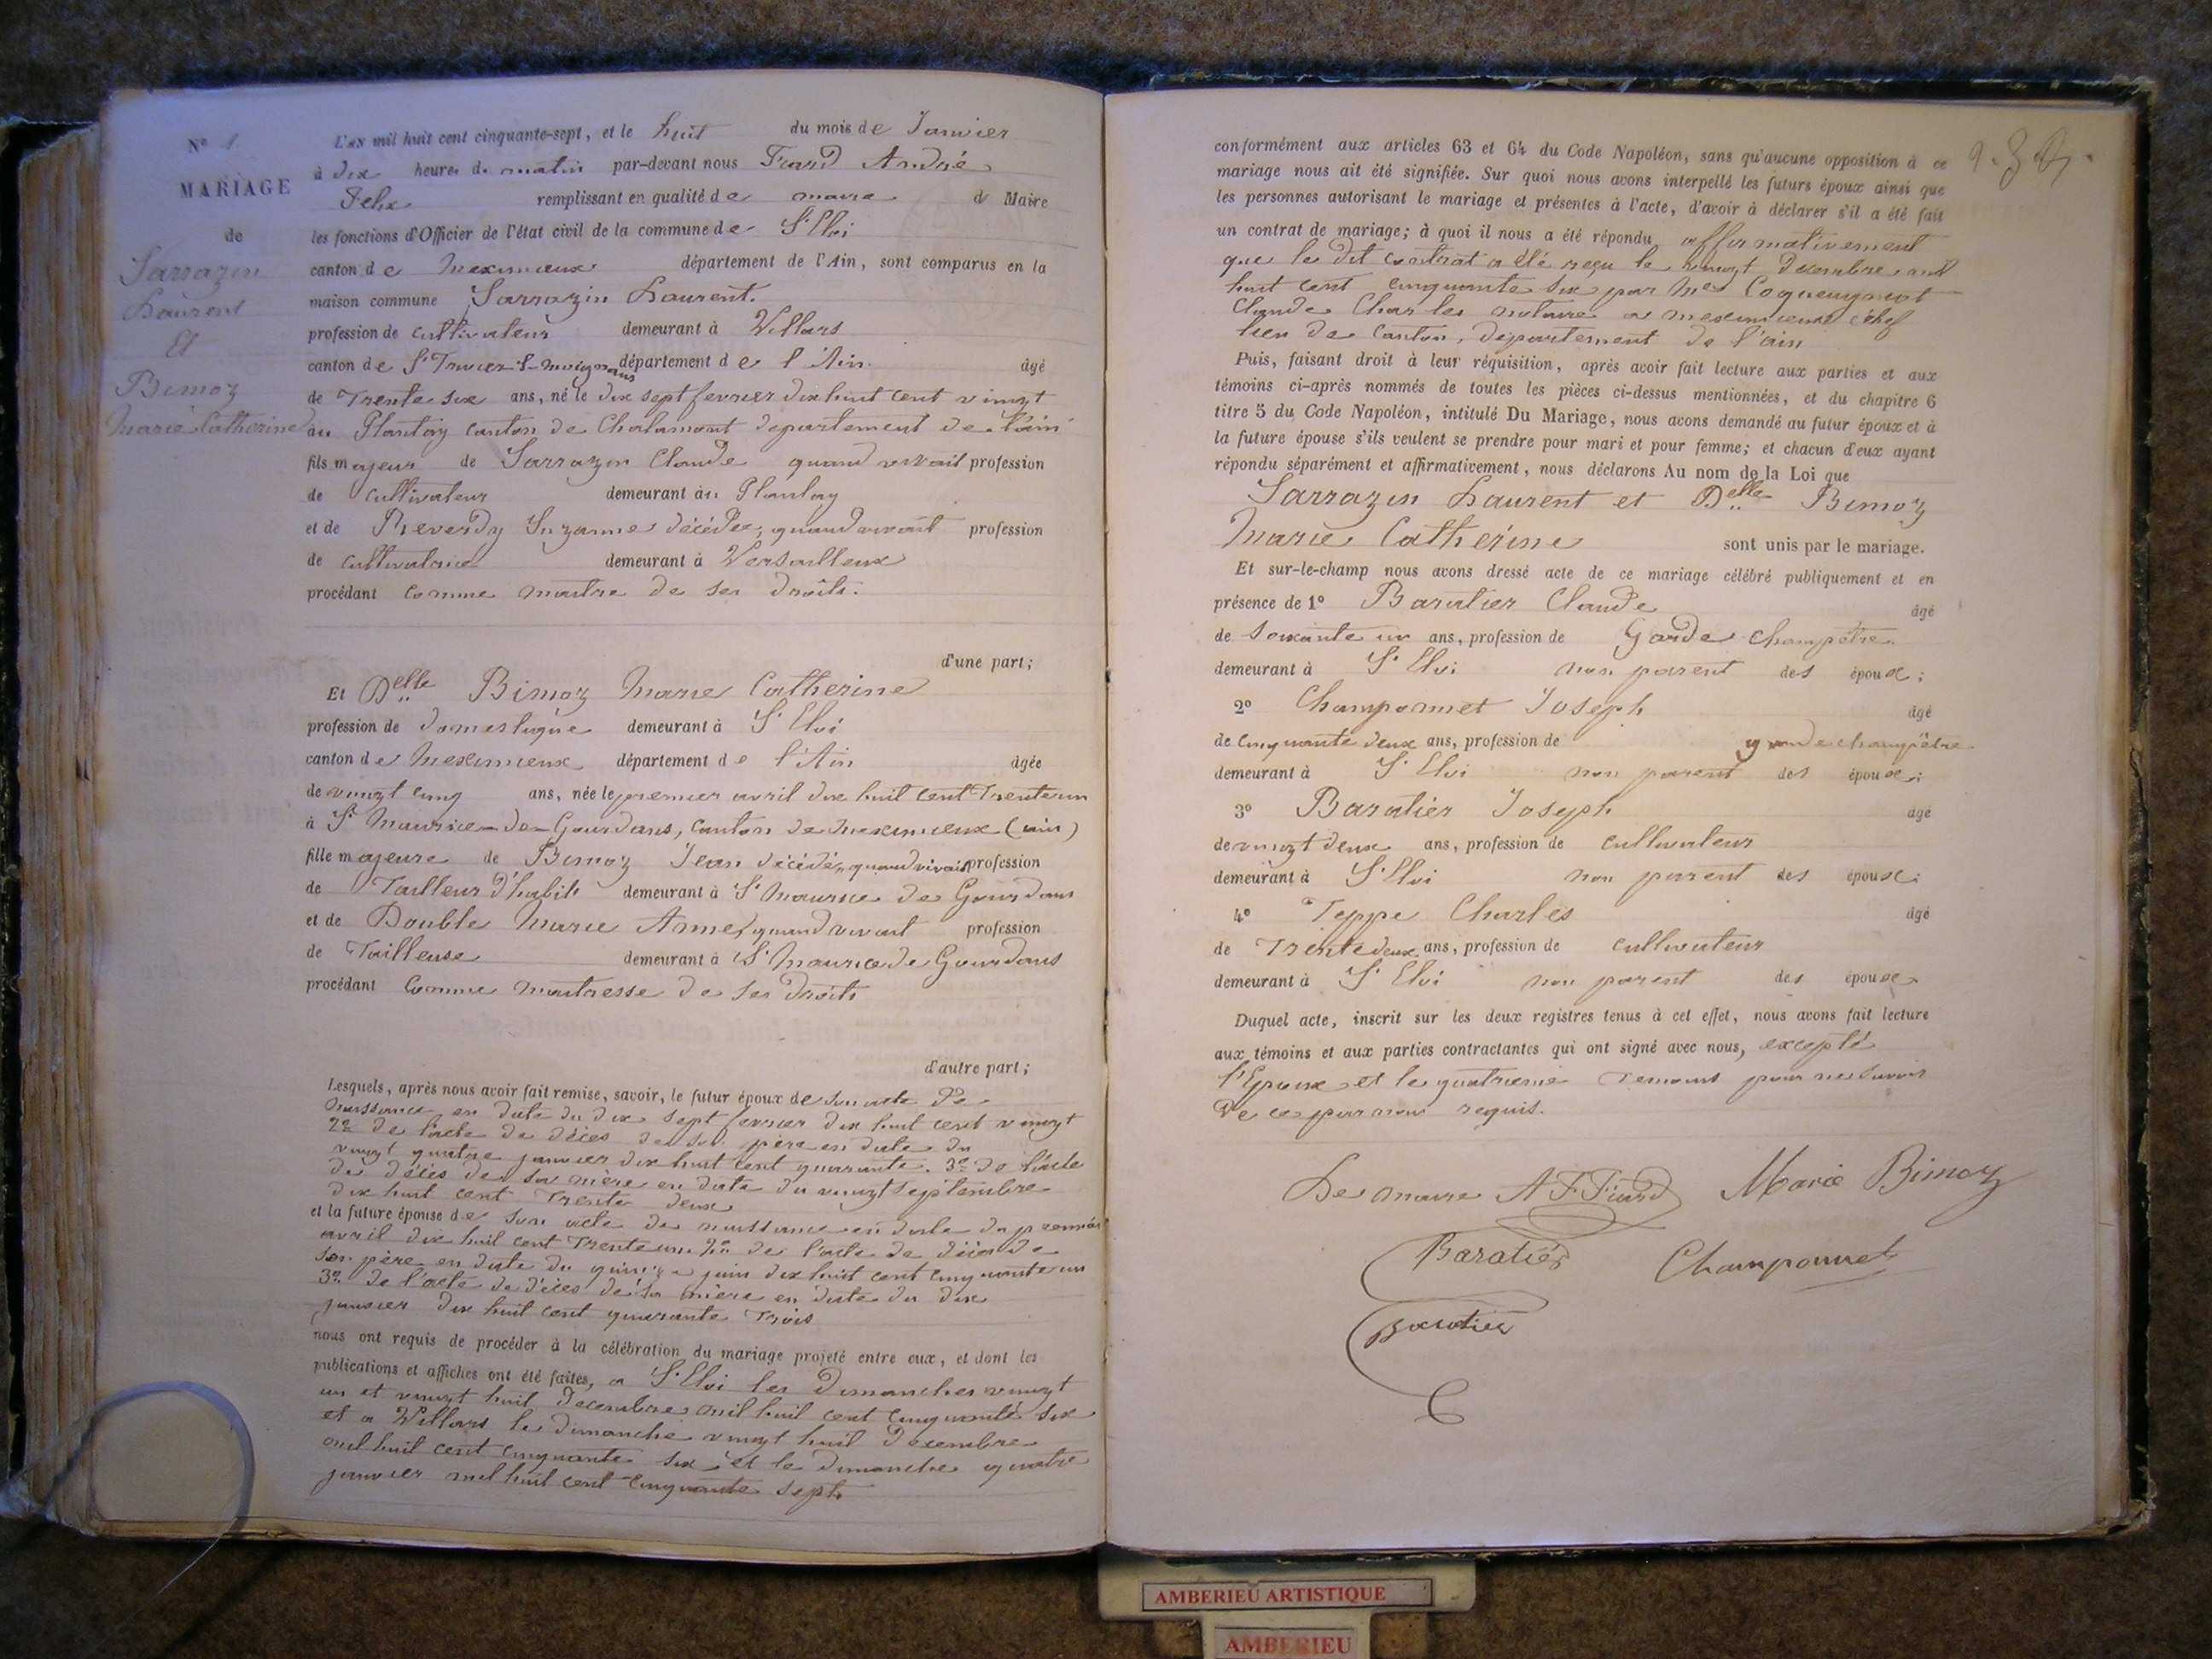 N° 1
MARIAGE
de
Sarrazin
Laurent
Et
Bimoz
Marie Catherine
L'an mil huit cent cinquante-sept, et le huit du mois de Janvier
à dix heures du matin par-devant nous André
Felix remplissant en qualité de maire d Maire
les fonctions d'Officier de l'état civil de la commune de St Eloi
canton de Meximieux département de l'Ain, sont comparus en la
maison commune Sarrazin Laurent.
profession de cultivateur demeurant à Villars
canton de St Trivier S- moignans département de l'Ain. âgé
de Trente six ans, né le dix sept fevrier dix huit cent vingt
au Plantay canton de Chalamont departement de l'ain
fils majeur de Sarrazin Claude quand vivait profession
de cultivateur demeurant au Plantay
et de Reverdy Suzanne décédée, quand vivait profession
de cultivatrice demeurant à Versailleux
procédant comme maitre de ses droits.
d'une part;
Et Delle Bimoz Marie Catherine
profession de domestique demeurant à St Eloi
canton de Meximieux département de l'Ain âgée
de vingt cinq ans, née le premier avril dix huit cent Trente un
à St Maurice-de-Gourdans, canton de meximieux (ain)
fille majeure de Bimoz Jean décédé, quand vivait profession
de Tailleur d'habits demeurant à St Maurice de Gourdans
et de Double Marie Anne, quand vivait profession
de Tailleuse demeurant à St Maurice de Gourdans
procédant comme maitresse de ses droits
d'autre part;
Lesquels, après nous avoir fait remise, savoir, le futur époux de son acte de
naissance en date du dix sept fevrier dix huit cent vingt
2° de l'acte de décès de son père en date du
vingt quatre janvier dix huit cent quarante. 3° de l'acte
de décès de sa mère en date du vingt septembre
dix huit cent Trente deux
et la future épouse de son acte de naissance en date du premier
avril dix huit cent Trente un 2° de l'acte de décès de
son père en date du quinze juin dix huit cent cinquante un
3° de l'acte de décès de sa mère en date du dix
janvier dix huit cent quarante Trois
nous ont requis de procéder à la célébration du mariage projeté entre eux, et dont les
publications et affiches ont été faites, a St Eloi les Dimanches vingt
un et vingt huit Decembre mil huit cent cinquante six
et a Villars le dimanche vingt huit Decembre
mil huit cent cinquante six et le Dimanche quatre
janvier mil huit cent cinquante sept
conformément aux articles 63 et 64 du Code Napoléon, sans qu'aucune opposition à ce
mariage nous ait été signifiée. Sur quoi nous avons interpellé les futurs époux ainsi que
les personnes autorisant le mariage et présentes à l'acte, d'avoir à déclarer s'il a été fait
un contrat de mariage; à quoi il nous a été répondu affirmativement
que le dit contrat a été reçu le vingt Decembre mil
huit cent cinquante six par Me
Claude Charles notaire a meximieux chef
lieu de Canton, département de l'ain
Puis, faisant droit à leur réquisition, après avoir fait lecture aux parties et aux
témoins ci-après nommés de toutes les pièces ci-dessus mentionnées, et du chapitre 6
titre 5 du Code Napoléon, intitulé Du Mariage, nous avons demandé au futur époux et à
la future épouse s'ils veulent se prendre pour mari et pour femme; et chacun d'eux ayant
répondu séparément et affirmativement, nous déclarons Au nom de la Loi que
Sarrazin Laurent et Delle Bimoz
Marie Catherine sont unis par le mariage.
Et sur-le-champ nous avons dressé acte de ce mariage célébré publiquement et en
présence de 1° Baratier Claude âgé
de soixante un ans, profession de Garde champêtre
demeurant à St Eloi non parent des époux;
2° Champonnet Joseph âgé
de cinquante deux ans, profession de garde champêtre
demeurant à St Eloi non parent des époux;
3° Baratier Joseph âgé
de vingt deux ans, profession de cultivateur
demeurant à St Eloi non parent des époux;
4° Teppe Charles âgé
de Trente deux ans, profession de cultivateur
demeurant à St Eloi non parent des époux
Duquel acte, inscrit sur les deux registres tenus à cet effet, nous avons fait lecture
aux témoins et aux parties contractantes qui ont signé avec nous, excepté
l'Epoux et le quatrieme Temoins pour ne savoir
de ce par nous requis.
Le maire Marie Bimoz
Baratier Champonnet
Baratier
AMBERIEU ARTISTIQUE
AMBERIEU